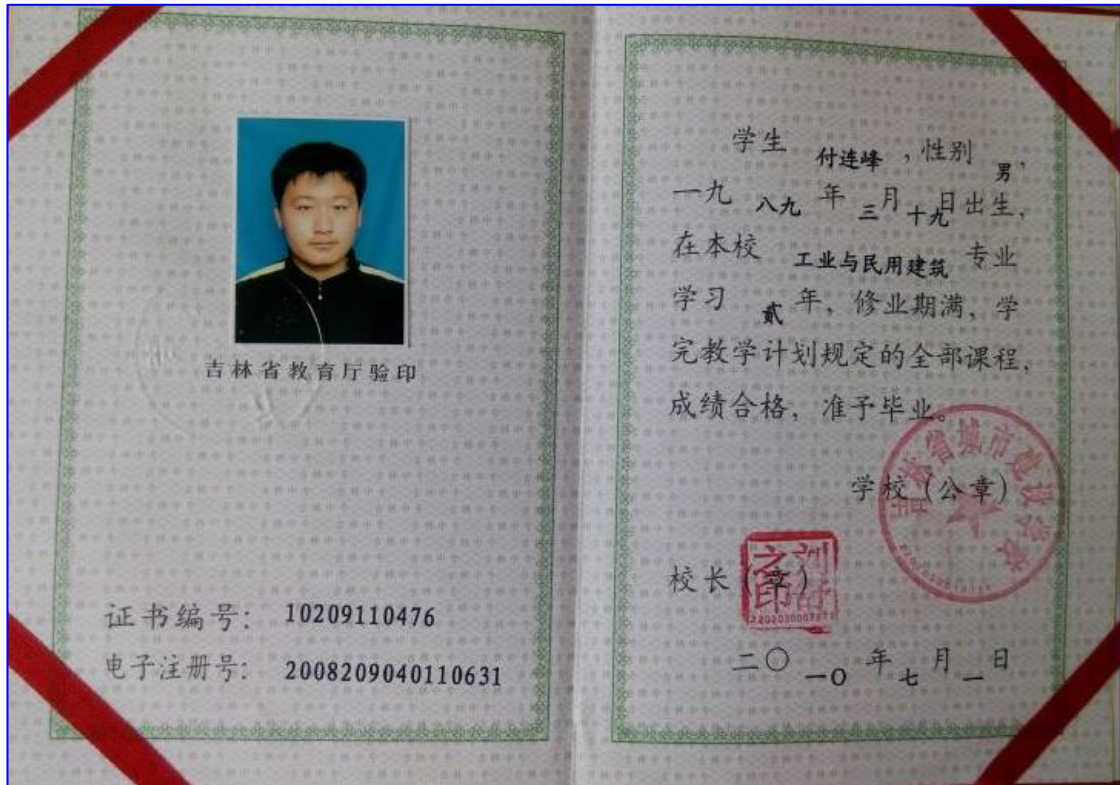 吉林省教育厅验印
证书编号: 10209110476
电子注册号: 2008209040110631
学生 付连峰 ,性别 男,
一九 八九 年 三月 十九日出生,
在本校 工业与民用建筑 专业
学习 贰 年, 修业期满, 学
完教学计划规定的全部课程,
成绩合格, 准予毕业。
学校(公章)
吉林省城市建设学校
校长(章)
之印
二〇一〇年七月一日